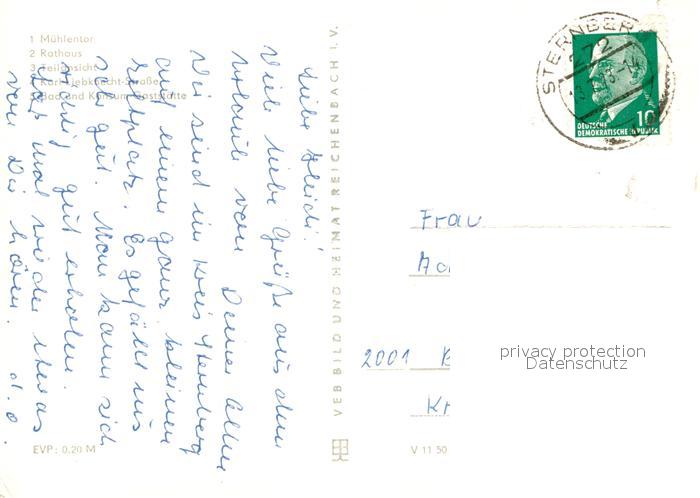 1 Mühlentor
2 Rathaus
3 Teilansicht
4 Karl-Liebknecht-Straße
5 Bad und Konsum-Gaststätte
Liebe Heidi!
Viele liebe Grüße aus dem
Urlaub von Deiner
Wir sind im Kreis Sternberg
auf einem ganz kleinen
Zeltplatz. Es gefällt uns
sehr gut. Man kann sich
richtig gut erholen.
Laß mal wieder etwas
von Dir hören. d. o.
EVP: 0,20 M
VEB BILD UND HEIMAT REICHENBACH I. V.
V 11 50
STERNBER
272
10
DEUTSCHE
DEMOKRATISCHE REPUBLIK
Frau
2001
privacy protection
Datenschutz